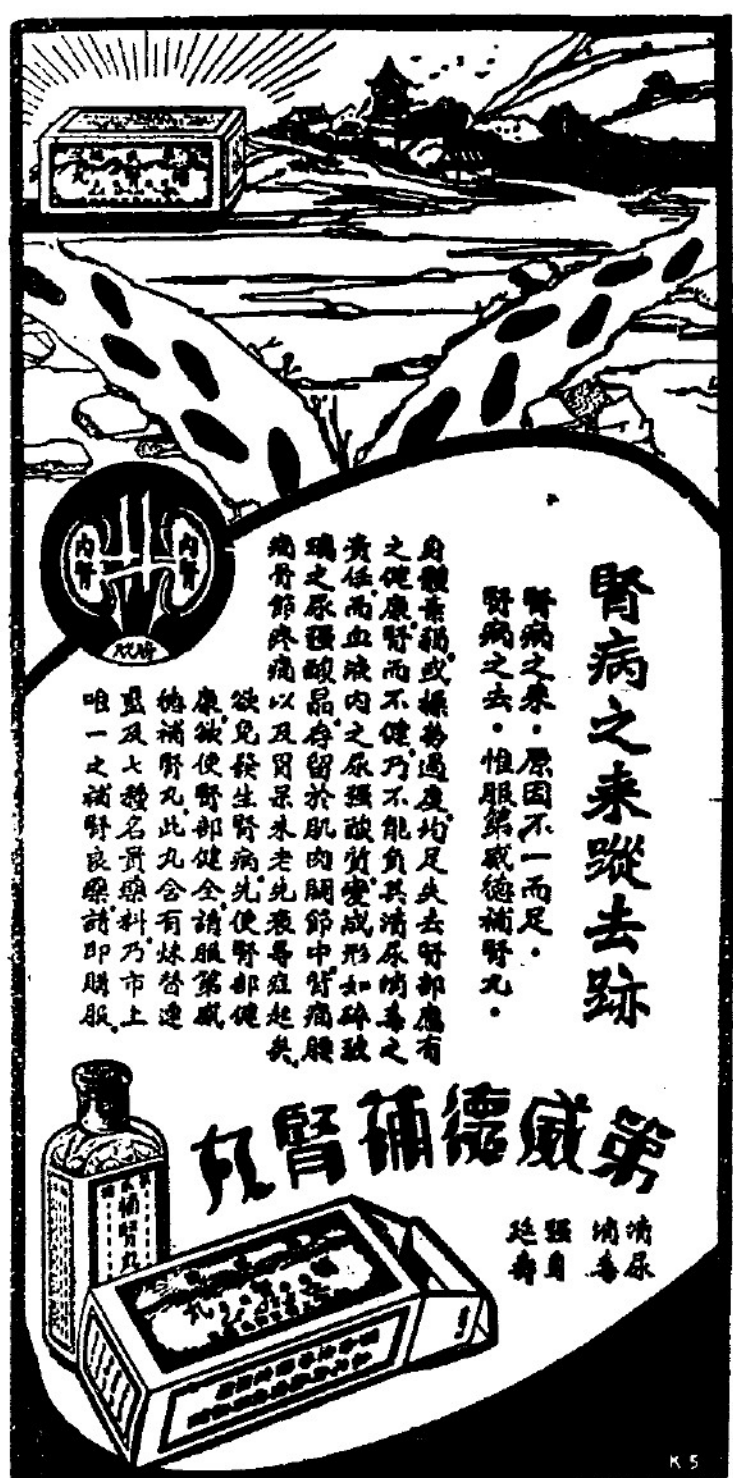 腎病之来蹤去跡
腎病之来·原因不一而足·
腎病之去·惟服第威德補腎丸·
身體素弱或操勞過度均足失去腎部應有
之健康腎而不健乃不能負其清尿消毒之
責任而血液内之尿强酸質變成形如碎玻
璃之尿强酸晶存留於肌肉關節中背痛腰
痛骨節疼痛以及胃呆未老先衰等症起矣
欲免發生腎病先使腎部健
康欲使腎部健全請服第威
德補腎丸此丸含有煉替連
藍及七種名貴藥料乃市上
唯一之補腎良藥請即購服
内腎
内腎
膀胱
第威德補腎丸
清尿
消毒
强身
延壽
補腎丸
K 5